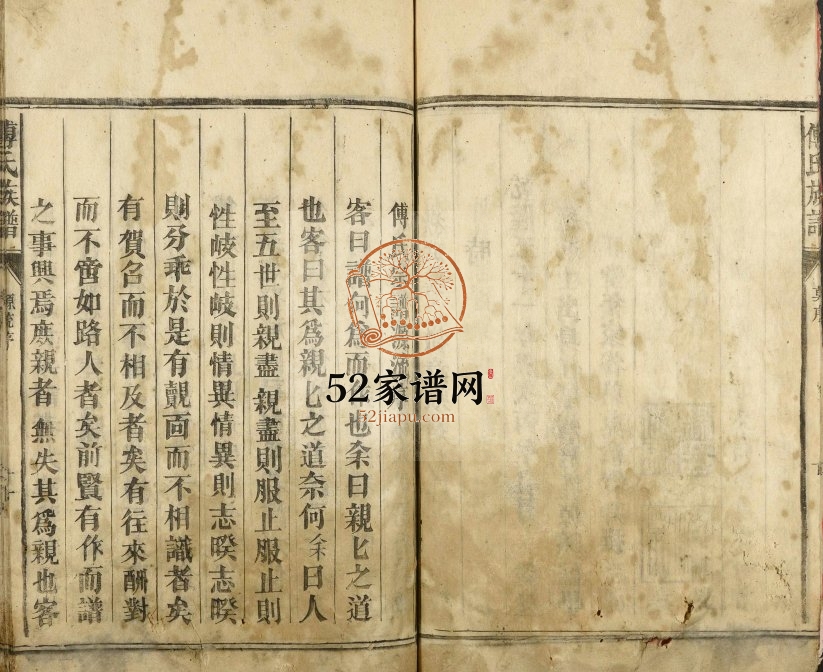 傅氏族譜
傅氏
客曰譜何爲而也余曰親匕之道
也客曰其爲親匕之道奈何余曰人
至五世則親盡親盡則服止服止則
性岐性岐則情異情異則志暌志暌
則分乖於是有覿面而不相識者矣
有賀名而不相及者矣有往來酬對
而不啻如路人者矣前賢有作而譜
之事興焉庻親者無失其爲親也客
傅氏族譜
52家谱网
52jiapu.com